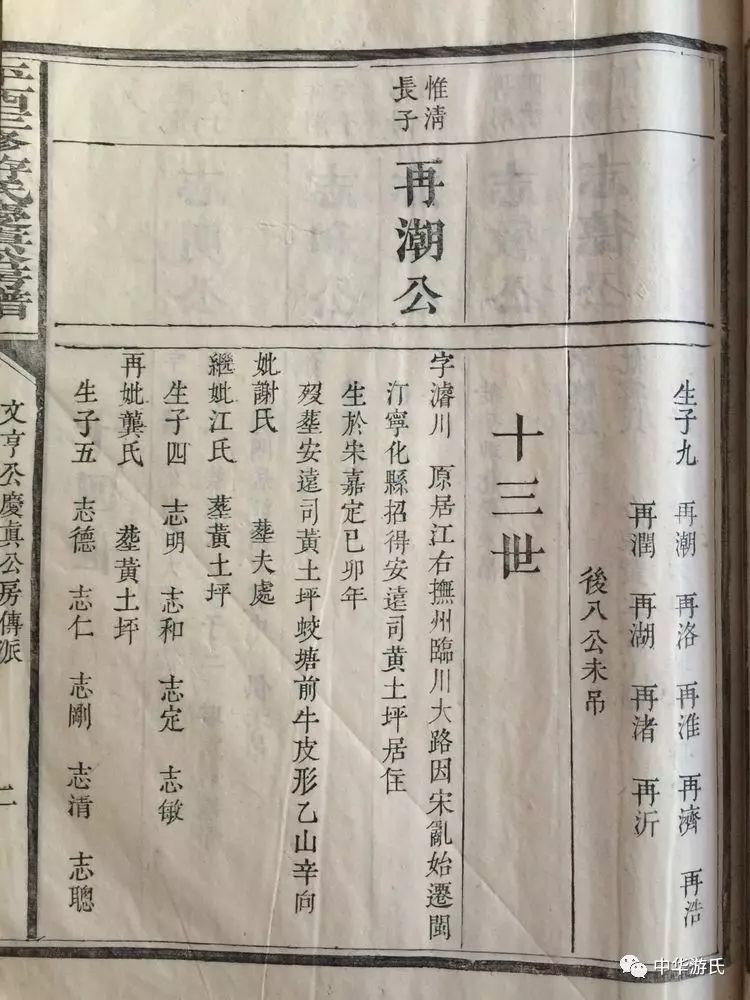 生子九 再潮 再洛 再淮 再濟 再浩
再潤 再湖 再渚 再沂
後八公未吊
十三世
惟清
長子
再潮公
字濬川 原居江右撫州臨川大路因宋亂始遷閩
汀寧化縣招得安遠司黄土坪居住
生於宋嘉定己卯年
歿塟安遠司黄土坪蛟塘前牛皮形乙山辛向
妣謝氏 塟夫處
繼妣江氏 塟黄土坪
生子四 志明 志和 志定 志敏
再妣龔氏 塟黄土坪
生子五 志德 志仁 志剛 志清 志聰
文亨公慶眞公房傳派
二
中华游氏